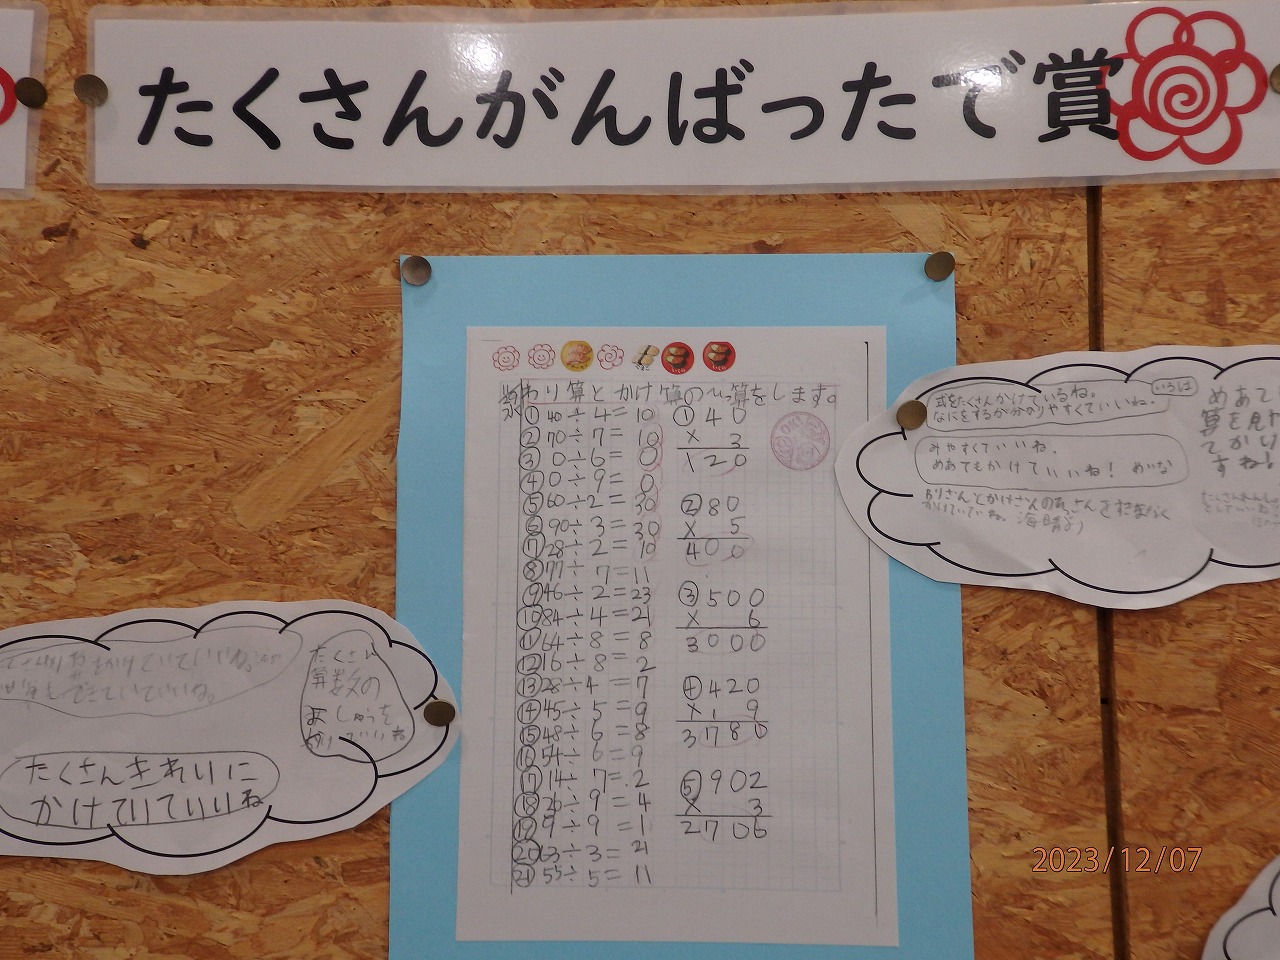 たくさんがんばったで賞
めあて わり算とかけ算のひっ算をします。
①40÷4=10
②70÷7=10
③0÷6=0
④0÷9=0
⑤60÷2=30
⑥90÷3=30
⑦28÷2=10
⑧77 7=11
⑨46÷2=23
⑩84÷4=21
⑪64÷8=8
⑫16÷8=2
⑬28÷4=7
⑭45÷5=9
⑮48÷6=8
⑯54÷6=9
⑰14÷7=2
⑱36÷9=4
⑲9÷9=1
⑳63÷3=21
㉑55÷5=11
①40
× 3
120
②80
× 5
400
③500
× 6
3000
④420
× 9
3780
⑤902
× 3
2706
式をたくさんかけているね。
なにをするか分のりやすくていいね。
いろは
みやすくていいね。
めあてもかけていいね! めいな
たくさん
算数の
れんしゅうを
たくさんきれいに
かけていていいね
2023/12/07